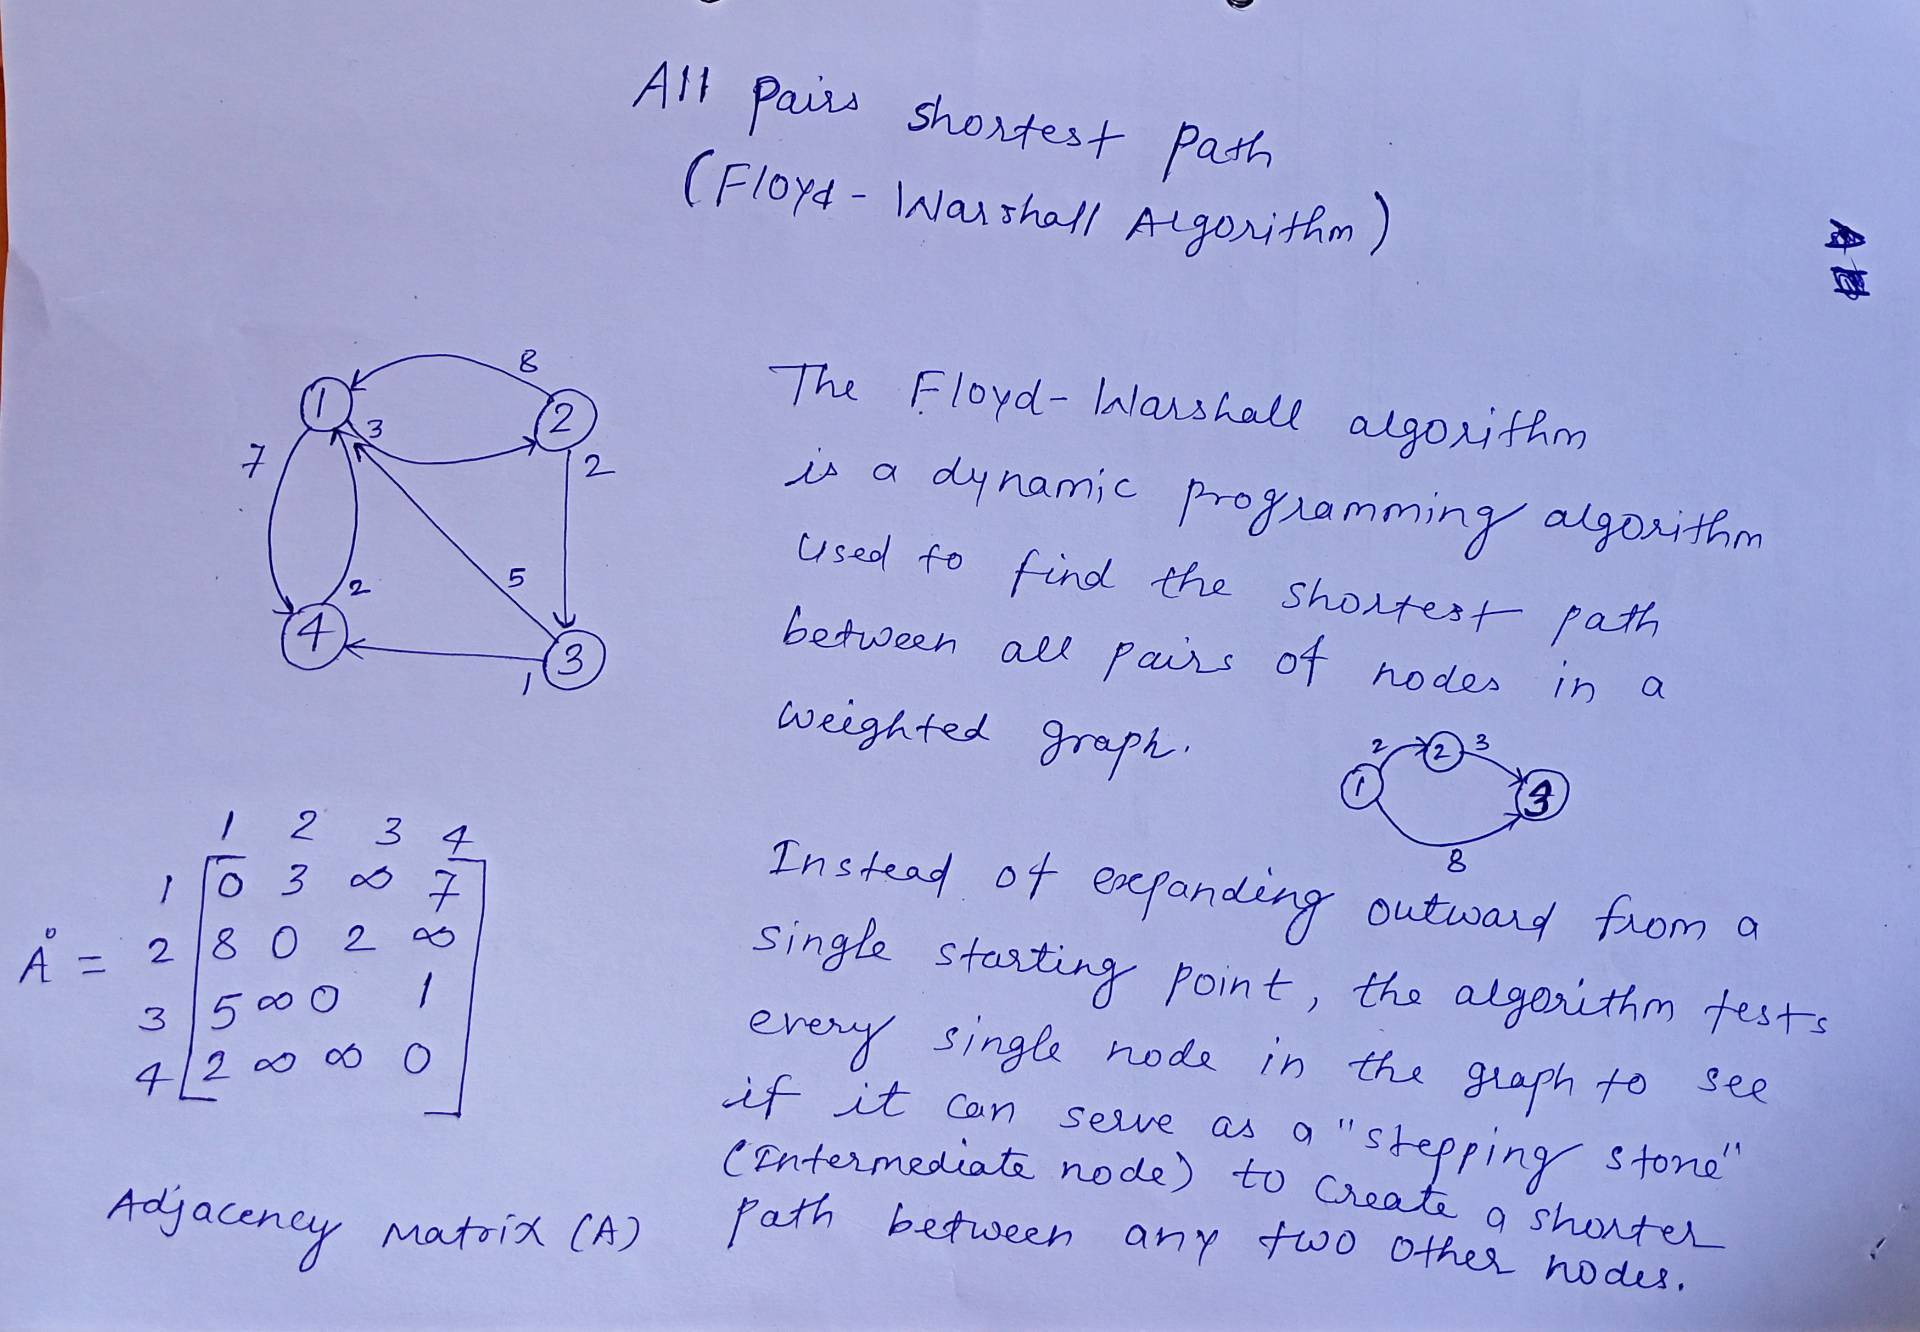 All pairs shortest path
(Floyd-Warshall Algorithm)
8
1
3
2
7
2
2
5
4
3
1
The Floyd-Warshall algorithm
is a dynamic programming algorithm
used to find the shortest path
between all pairs of nodes in a
weighted graph.
2 2 3
1
8
Instead of expanding outward from a
single starting point, the algorithm tests
every single node in the graph to see
if it can serve as a "stepping stone"
(Intermediate node) to create a shorter
path between any two other nodes.
1 2 3 4
1 0 3 ∞ 7
A⁰ = 2 8 0 2 ∞
3 5 ∞ 0 1
4 2 ∞ ∞ 0
Adjacency Matrix (A)